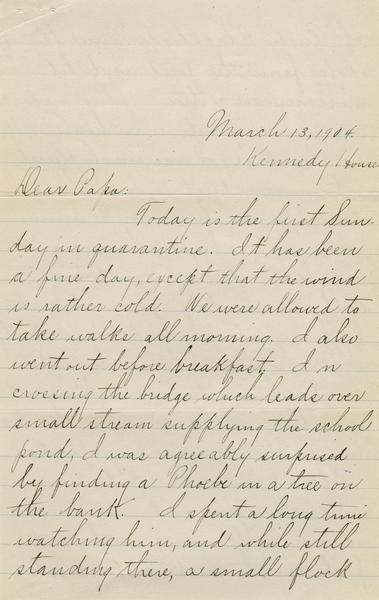 March 13, 1904.
Kennedy House
Dear Papa:
Today is the first Sun-
day in quarantine. It has been
a fine day, except that the wind
is rather cold. We were allowed to
take walks all morning. I also
went out before breakfast. In
crossing the bridge which leads over
small stream supplying the school
pond, I was agreeably surprised
by finding a Phoebe in a tree on
the bank. I spent a long time
watching him, and while still
standing there, a small flock